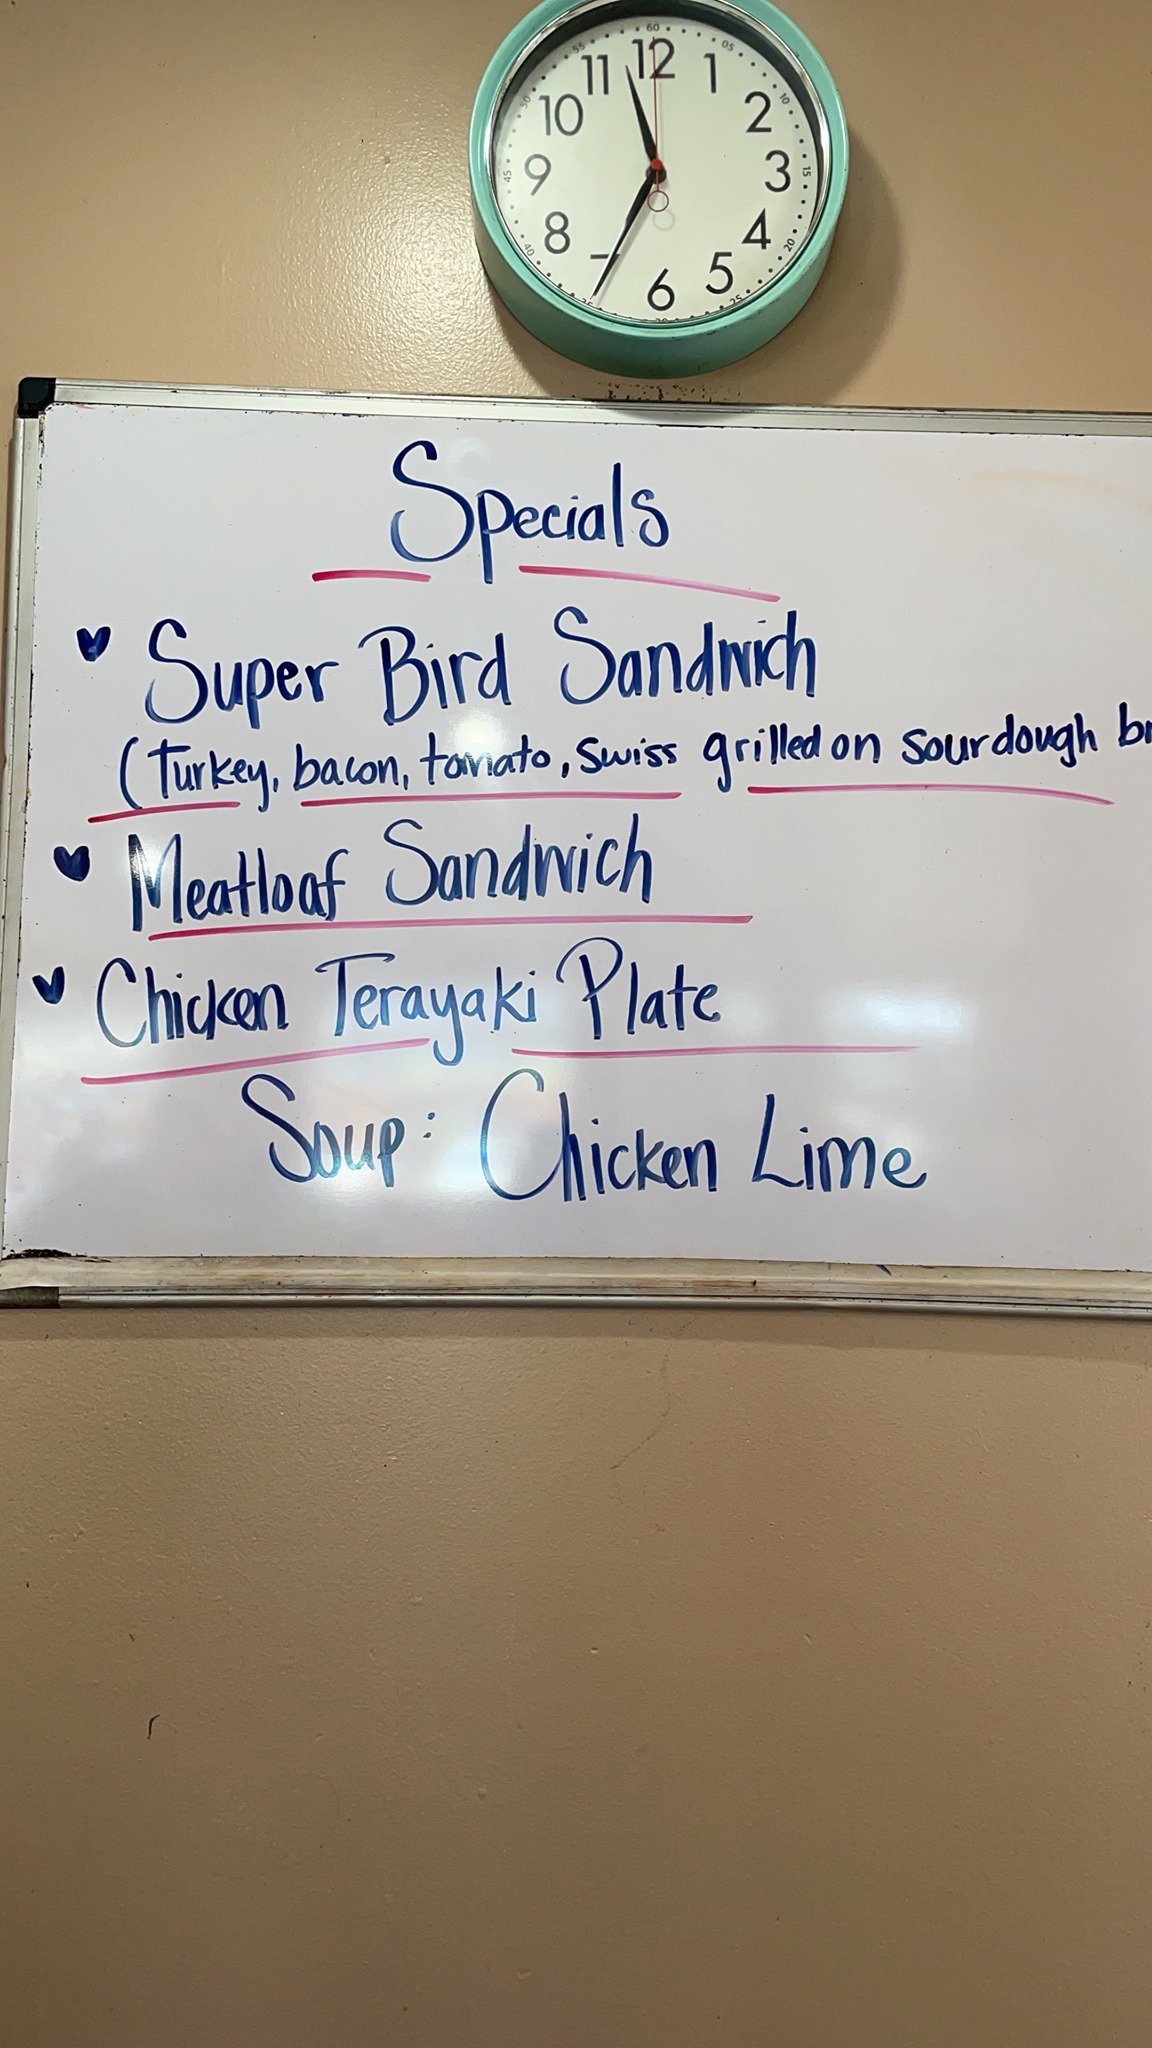 60
55 05
11 12 1
50 10 2 10
45 9 3 15
40 8 4 20
6 5
25
Specials
Super Bird Sandwich
(Turkey, bacon, tomato, swiss grilled on sourdough
Meatloaf Sandwich
Chicken Terayaki Plate
Soup: Chicken Lime